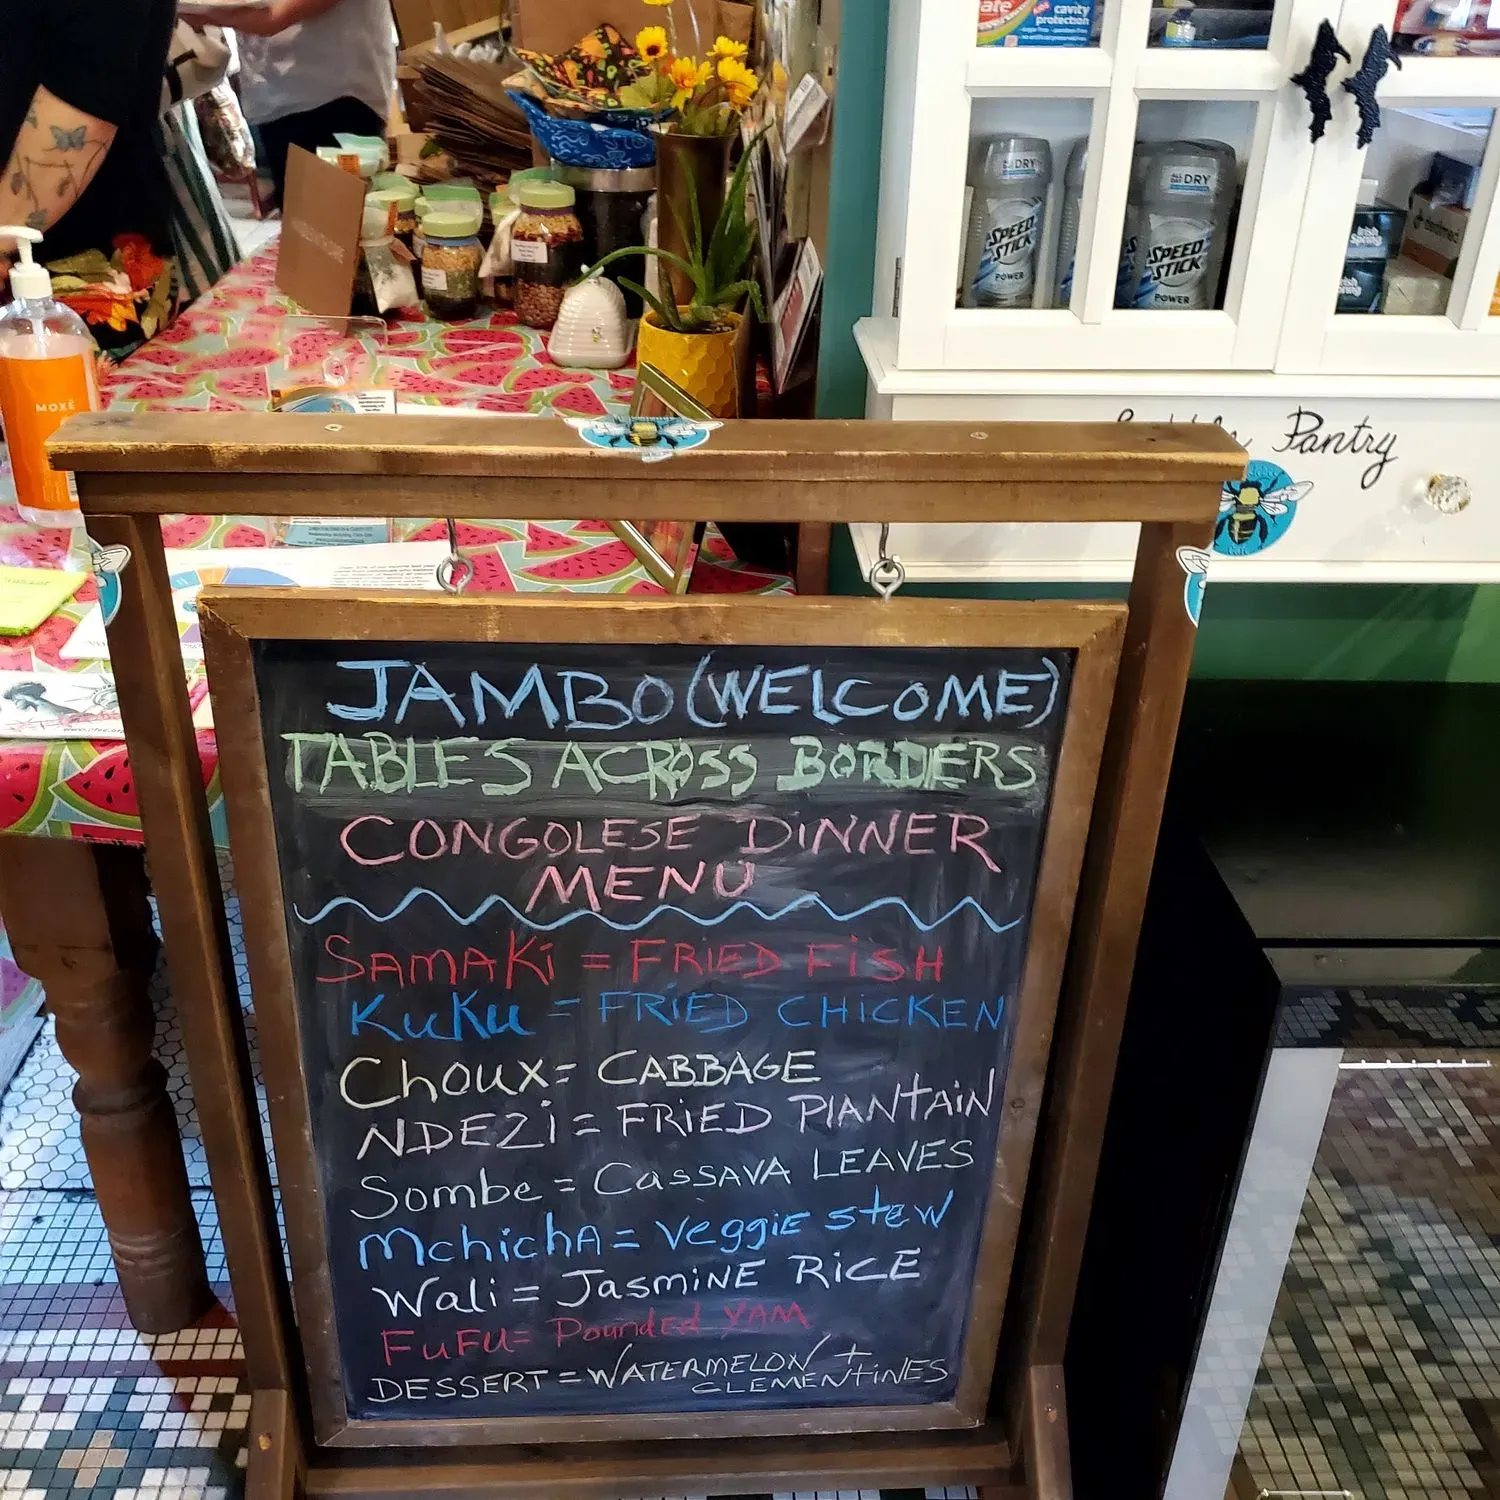 cavity
protection
ALL DAY DRY
SPEED
STICK
POWER
ALL DAY DRY
SPEED
STICK
POWER
Irish
Spring
Irish
Spring
MOXĒ
Pantry
Cafe
JAMBO (WELCOME)
TABLES ACROSS BORDERS
CONGOLESE DINNER
MENU
SAMAKi = FRiED FiSH
KuKu = FRiED CHiCKEN
Choux = CABBAGE
NDEZi = FRiED PlANTAiN
Sombe = CASSAVA LEAVES
MchichA = Veggie stew
Wali = JasmiNE RiCE
FuFu = Pounded YAM
DESSERT = WATERMELON +
CLEMENTiNES